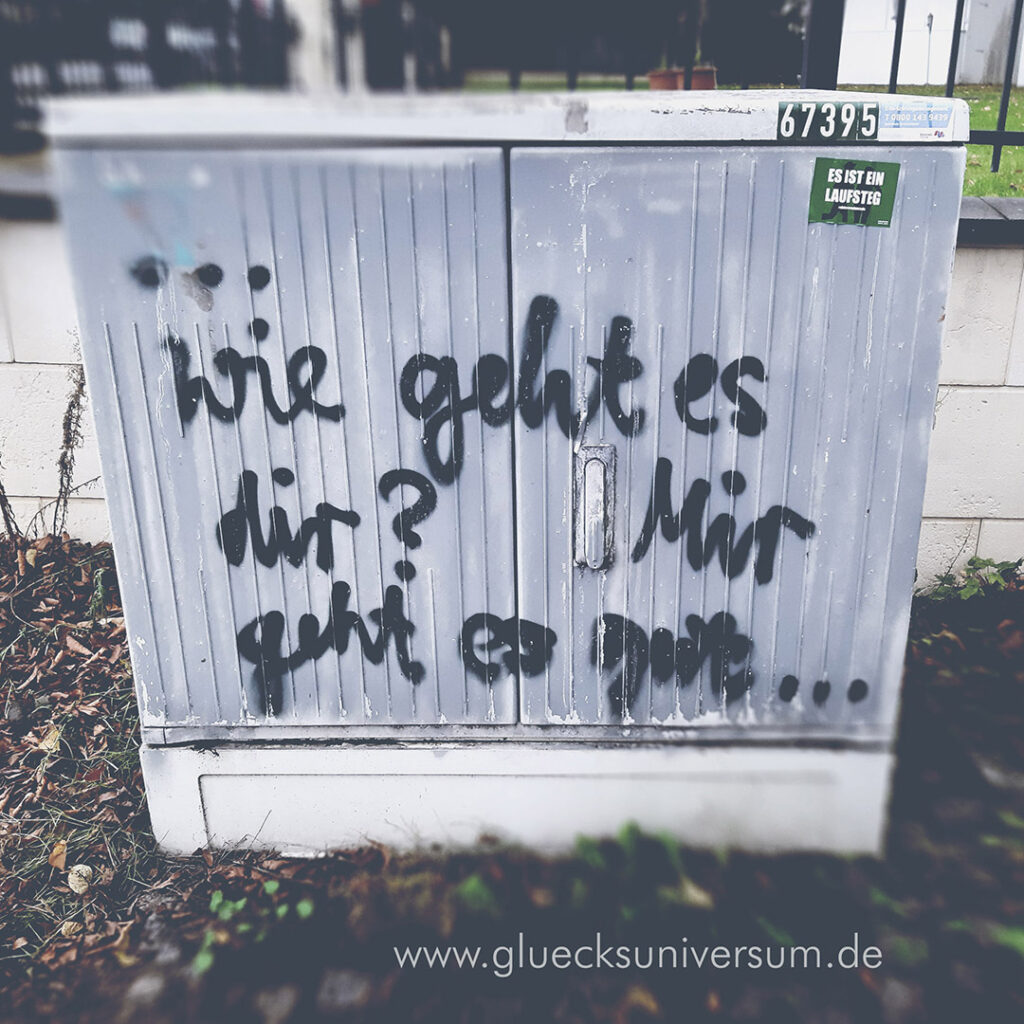 67395
T 0800 143 9439
ES IST EIN
LAUFSTEG
...
wie geht es
dir? Mir
geht es gut...
www.gluecksuniversum.de